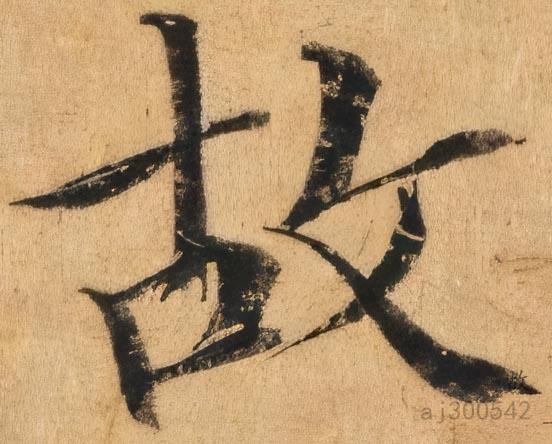 故
aj300542